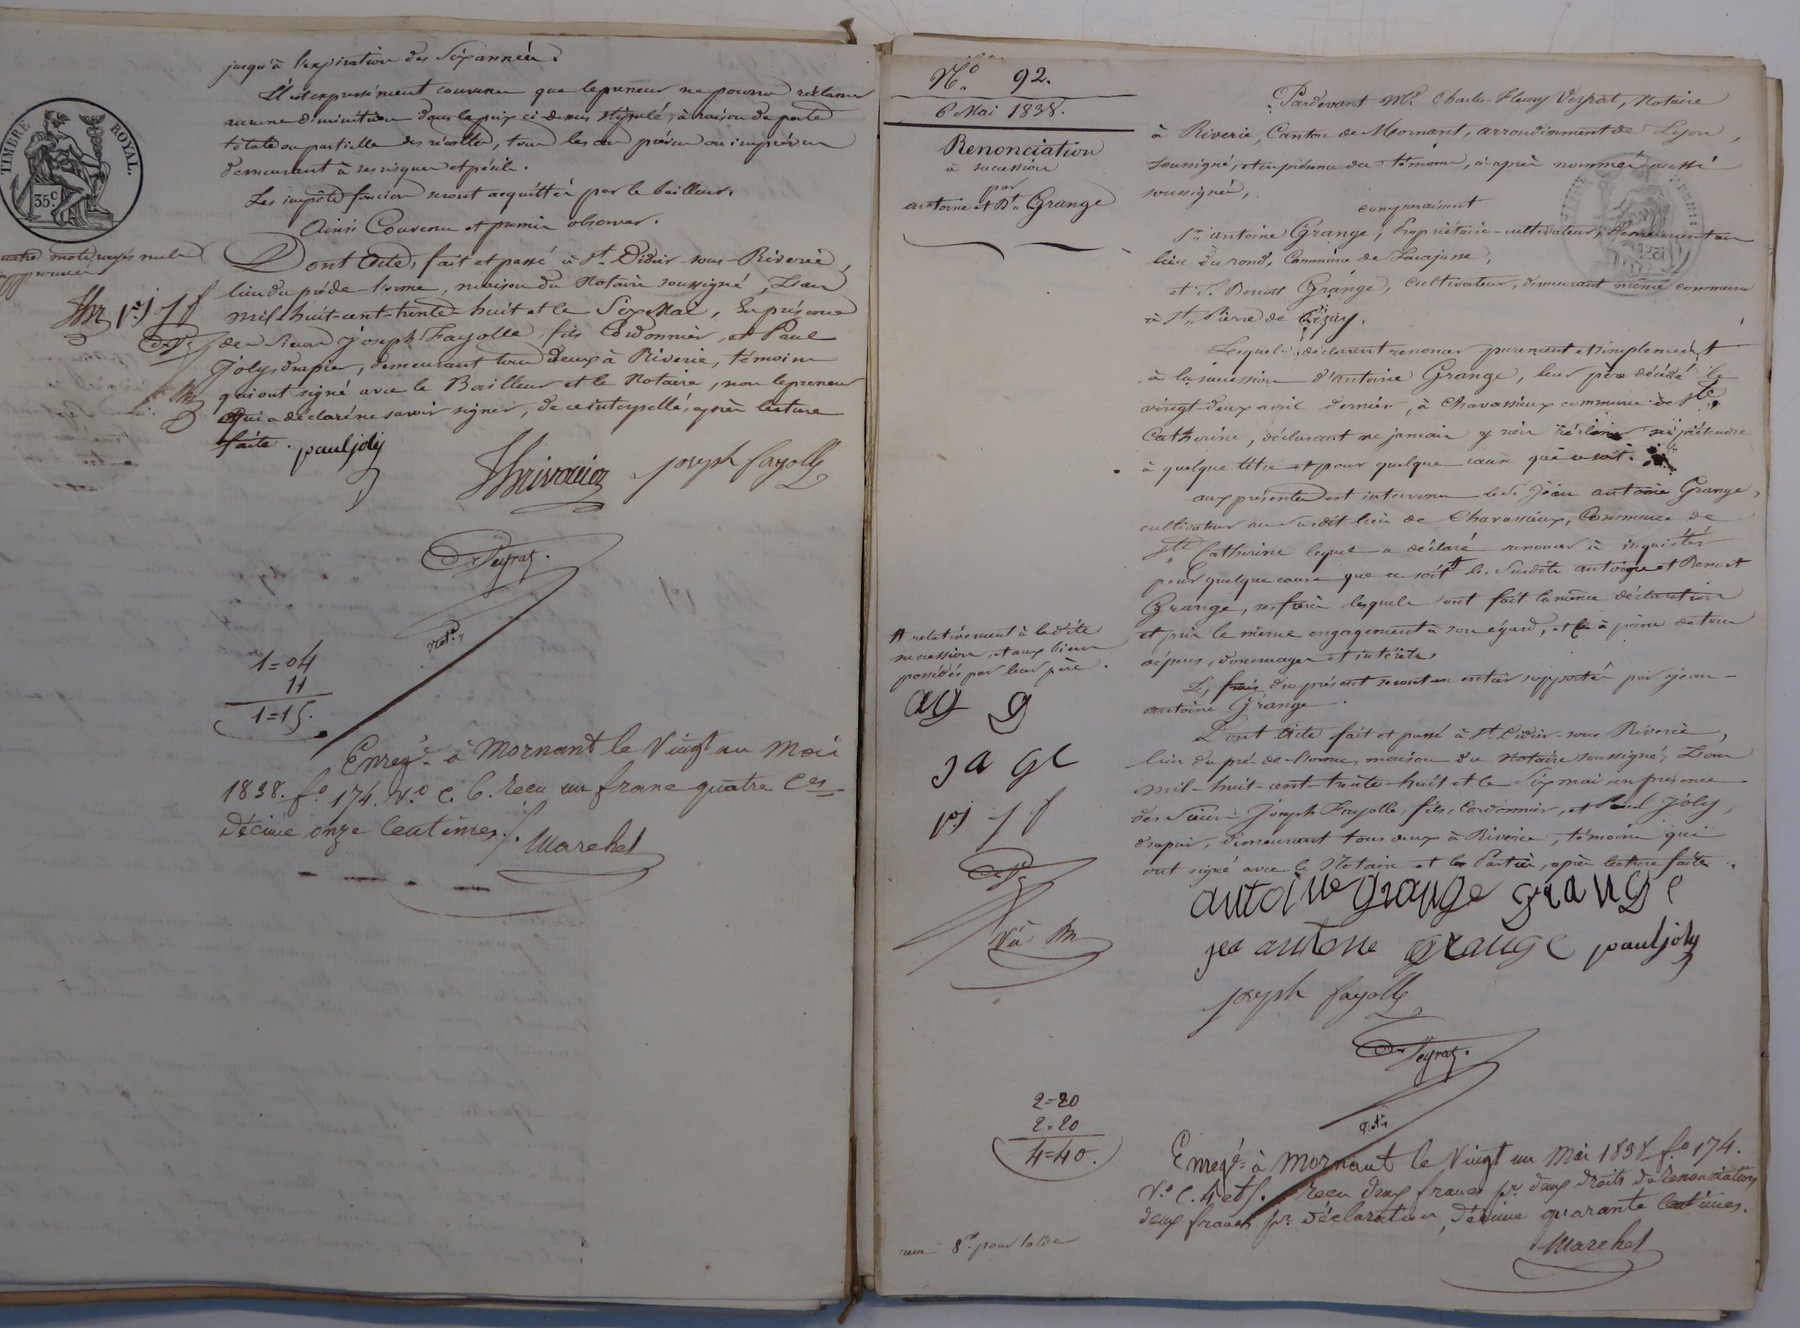 jusqu'à l'expiration des six années.
Il est expressément convenu que le preneur ne pourra réclamer
aucune diminution dans le prix ci-dessus stipulé, à raison de perte
totale ou partielle des récoltes, tous les cas prévus ou imprévus
demeurant à ses risques et périls.
Les impôts fonciers seront acquittés par le bailleur.
Ainsi Convenu et promis observer.
TIMBRE ROYAL.
35c
quatre mots rayés nuls
approuvés
Dont Acte, fait et passé à St. Didier sous Riverie,
lieu du pré de-l'orme, maison du Notaire soussigné, L'an
mil-huit-cent-trente-huit et le Six Mai, En présence
des Sieurs Joseph Fayolle fils Cordonnier, et Paul
Joly drapier, demeurant tous deux à Riverie, témoins
qui ont signé avec le Bailleur et le Notaire, non le preneur
qui a déclaré ne savoir signer, de ce interpellé, après lecture
faite.
paul joly
joseph fayolle
Peyrat.
Not.re
1=04
11
1=15.
Enreg.é à Mornant le Vingt un Mai
1838. f.o 174. V.o C. 6. Reçu un franc quatre ces
Décime onze Centimes.
Marehel
N.o 92.
6 Mai 1838.
Renonciation
à succession
par
antoine et B.t Grange
Pardevant M.e Charles-Fleury Peyrat, Notaire
à Riverie, Canton de Mornant, arrondissement de Lyon,
soussigné, et en présence des témoins, ci-après nommés aussi
soussignés,
comparaissent
S.rs antoine Grange, Propriétaire-cultivateur, demeurant au
lieu du rond, Commune de Larajasse,
et S.r Benoit Grange, cultivateur, demeurant même commune
à St. Pierre de
Lesquels déclarent renoncer purement et simplement
à la succession d'antoine Grange, leur père décédé le
vingt-deux avril dernier, à Chavassieux commune de Ste
Catherine, déclarant ne jamais y rien réclamer ni prétendre
à quelque titre et pour quelque cause que ce soit.
aux présentes est intervenu le S.r Jean antoine Grange,
cultivateur au susdit lieu de Chavassieux, Commune de
Ste Catherine lequel a déclaré renoncer à inquiéter
pour quelque cause que ce soit les susdits antoine et Benoit
Grange, ses frères lesquels ont fait la même déclaration
et pris le même engagement à son égard, et ce à peine de tous
dépens, dommages et intérêts.
relativement à ladite
succession, et aux biens
possédés par leur père.
ag g
ja gc
pj jf
Les frais des présentes seront en entier supportés par jean-
antoine Grange.
Dont Acte fait et passé à St. Didier-sous Riverie,
lieu du pré-de-l'orme, maison du Notaire soussigné, L'an
mil-huit-cent-trente-huit et le Six mai en présence
des Sieurs Joseph Fayolle, fils, Cordonnier, et Paul Joly,
drapier, demeurant tous deux à Riverie, témoins qui
ont signé avec le Notaire et les Parties, après lecture faite.
antoine grange grange
jea antone grange paul joly
joseph fayolle
Peyrat.
2=20
2.20
4=40.
Enreg.é à Mornant le Vingt un Mai 1838 f.o 174.
V.o C. 4 et 5. reçu deux francs p.r deux droits de renonciation
deux francs p.r déclaration, décime quarante Centimes.
Marehel
pour solde